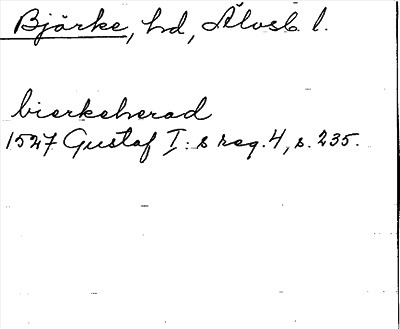 Bjärke, hd, Älvsb. l.
bierkeherad
1527 Gustaf I:s reg. 4, s. 235.